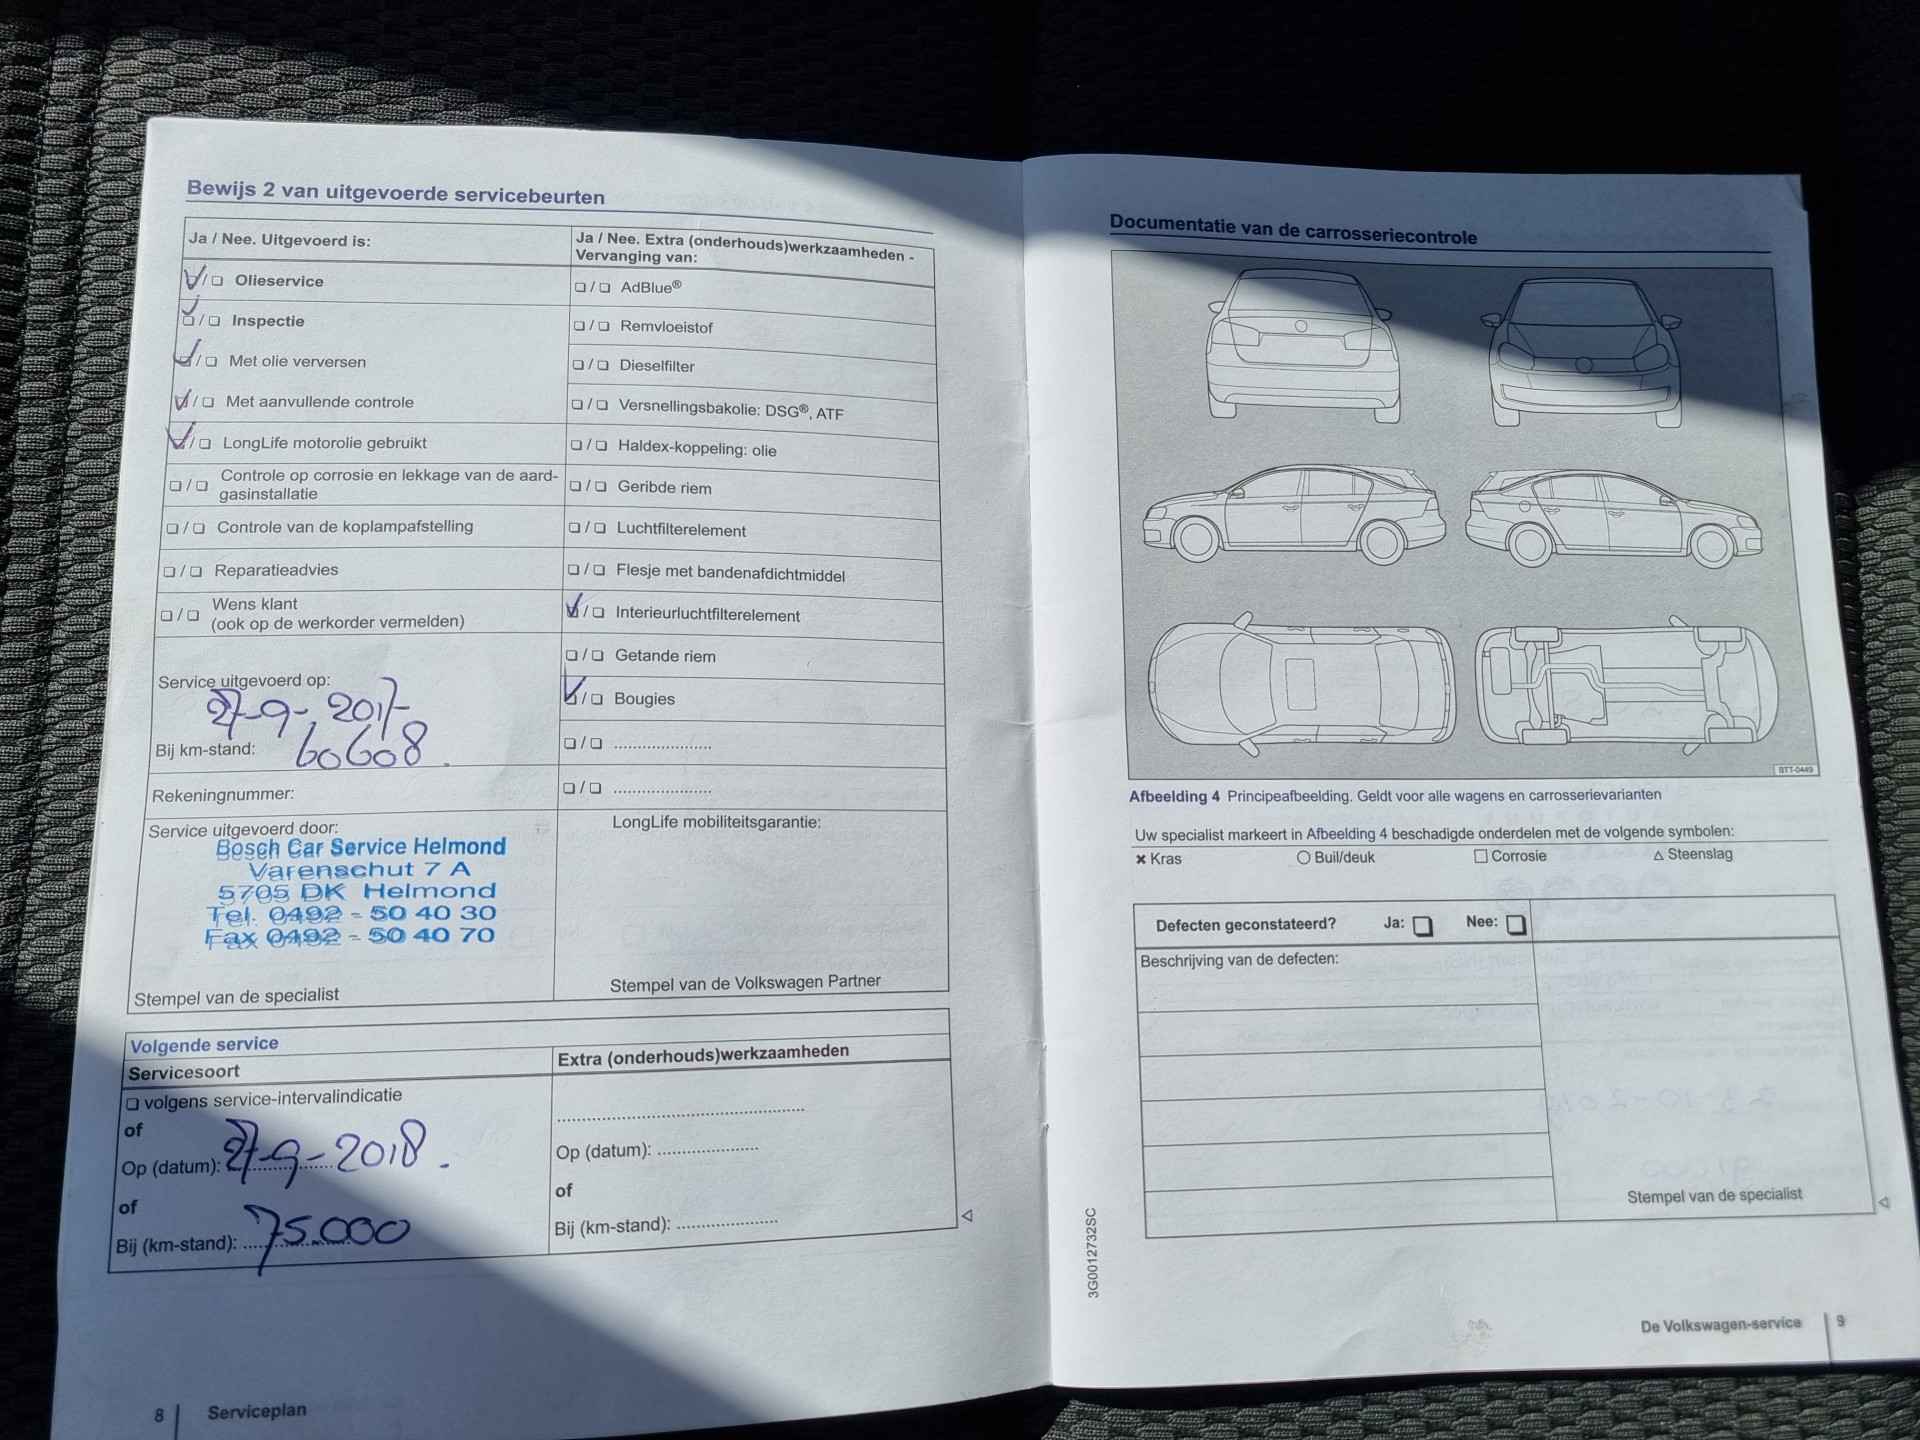 Bewijs 2 van uitgevoerde servicebeurten
Ja / Nee. Uitgevoerd is:
Olieservice
Inspectie
Met olie verversen
Met aanvullende controle
LongLife motorolie gebruikt
Controle op corrosie en lekkage van de aard-
gasinstallatie
Controle van de koplampafstelling
Reparatieadvies
Wens klant
(ook op de werkorder vermelden)
Service uitgevoerd op:
27-9-2017
Bij km-stand: 60608.
Rekeningnummer:
Service uitgevoerd door:
Bosch Car Service Helmond
Varenschut 7 A
5705 DK Helmond
Tel. 0492 - 50 40 30
Fax 0492 - 50 40 70
Stempel van de specialist
Ja / Nee. Extra (onderhouds)werkzaamheden -
Vervanging van:
AdBlue®
Remvloeistof
Dieselfilter
Versnellingsbakolie: DSG®, ATF
Haldex-koppeling: olie
Geribde riem
Luchtfilterelement
Flesje met bandenafdichtmiddel
Interieurluchtfilterelement
Getande riem
Bougies
LongLife mobiliteitsgarantie:
Stempel van de Volkswagen Partner
Volgende service
Servicesoort
volgens service-intervalindicatie
of
Op (datum): 27-9-2018.
of
Bij (km-stand): 75.000
Extra (onderhouds)werkzaamheden
Op (datum):
of
Bij (km-stand):
8 Serviceplan
Documentatie van de carrosseriecontrole
BTT-0449
Afbeelding 4 Principeafbeelding. Geldt voor alle wagens en carrosserievarianten
Uw specialist markeert in Afbeelding 4 beschadigde onderdelen met de volgende symbolen:
Kras Buil/deuk Corrosie Steenslag
Defecten geconstateerd? Ja: Nee:
Beschrijving van de defecten:
Stempel van de specialist
3G0012732SC
De Volkswagen-service 9